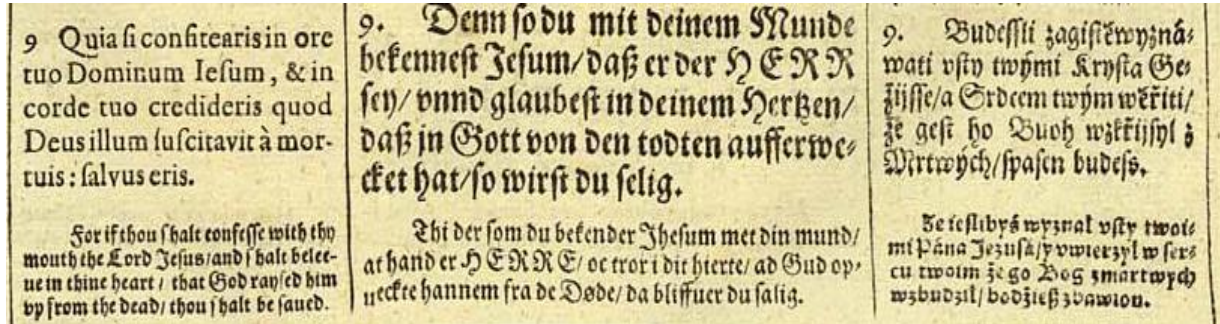 9 Quia ſi confitearis in ore
tuo Dominum Ieſum, & in
corde tuo credideris quod
Deus illum ſuſcitavit à mor-
tuis: ſalvus eris.
For if thou ſhalt confeſſe with thy
mouth the Lord Jeſus/ and ſhalt belee-
ue in thine heart/ that God rayſed him
vp from the dead/ thou ſhalt be ſaued.
9. Denn ſo du mit deinem Munde
bekenneſt Jeſum/ daß er der HERR
ſey/ vnnd glaubeſt in deinem Hertzen/
daß in Gott von den todten aufferwe⸗
cket hat/ ſo wirſt du ſelig.
Thi der ſom du bekender Jheſum met din mund/
at hand er HERRE/ oc tror i dit hierte/ ad Gud op⸗
ueckte hannem fra de Døde/ da bliffuer du ſalig.
9. Budeſſli zagiſtě wyzná⸗
wati vſty twými Kryſta Ge⸗
žijſſe/ a Srdcem twým wěřiti/
že geſt ho Buoh wzkřijſyl z
Mrtwých/ ſpaſen budeſs.
Że ieſlibyś wyznał vſty twoi⸗
mi Páná Jezuſá/ y vwierzył w ſer⸗
cu twoim że go Bog zmartwych
wzbudził/ bodźieß zbawion.